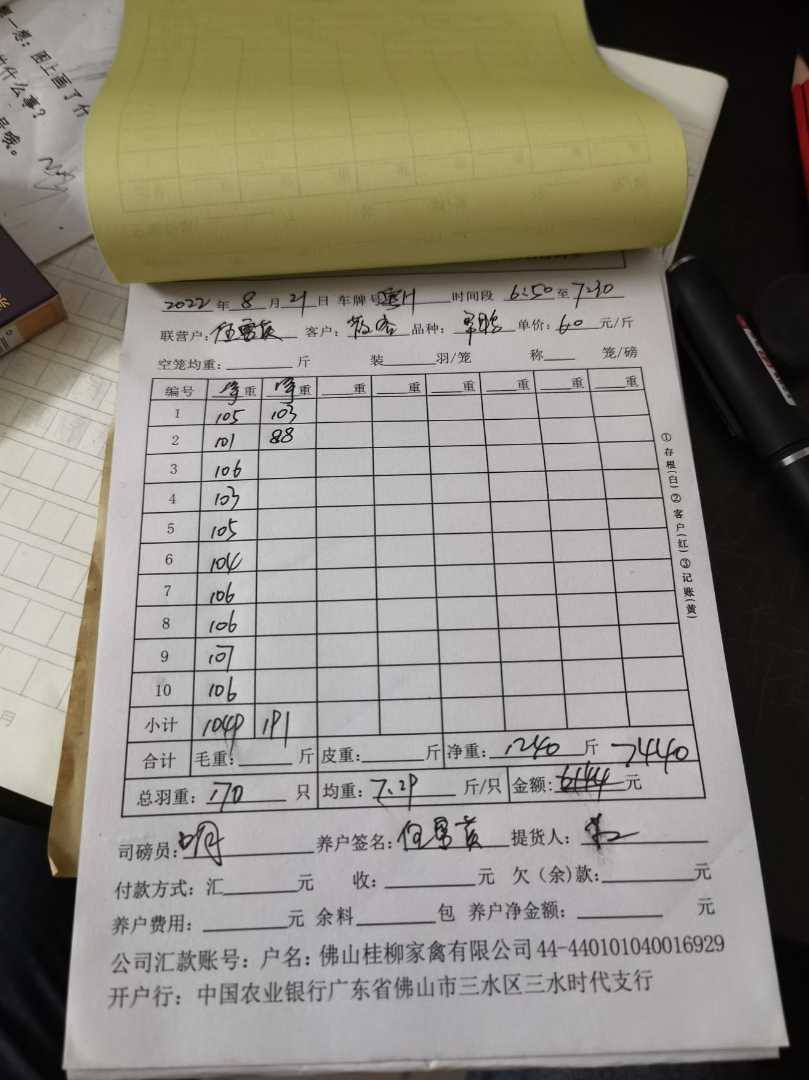 一想：图上画了什
什么事？
2022 年 8 月 21 日 车牌号 时间段 6:50 至 7:30
联营户： 客户：散客 品种： 单价：6.0 元/斤
空笼均重： 斤 装 羽/笼 称 笼/磅
编号 净重 净重 重 重 重 重 重 重
1 105 103
2 101 88
3 106
4 103
5 105
6 104
7 106
8 106
9 107
10 106
小计 1049 191
合计 毛重： 斤 皮重： 斤 净重：1240 斤 7440
总羽重：170 只 均重：7.29 斤/只 金额：6144 元
司磅员： 养户签名： 提货人：
付款方式：汇 元 收： 元 欠（余）款： 元
养户费用： 元 余料 包 养户净金额： 元
公司汇款账号：户名：佛山桂柳家禽有限公司 44-440101040016929
开户行：中国农业银行广东省佛山市三水区三水时代支行
①存根（白）②客户（红）③记账（黄）
月